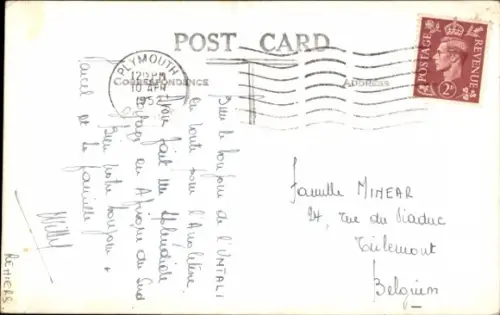 POST CARD
CORRESPONDENCE
ADDRESS
PLYMOUTH
12 PM
10 APR
195
POSTAGE
REVENUE
2D
Bien le bonjour de l'UMTALI
en route pour l'Angleterre.
Avoir fait un splendide
voyage en Afrique du Sud.
Bien notre bonjour à
Marcel et la famille
Willy
REMIERS.
Famille MINEAR
24, rue du Viaduc
Tirlemont
Belgium